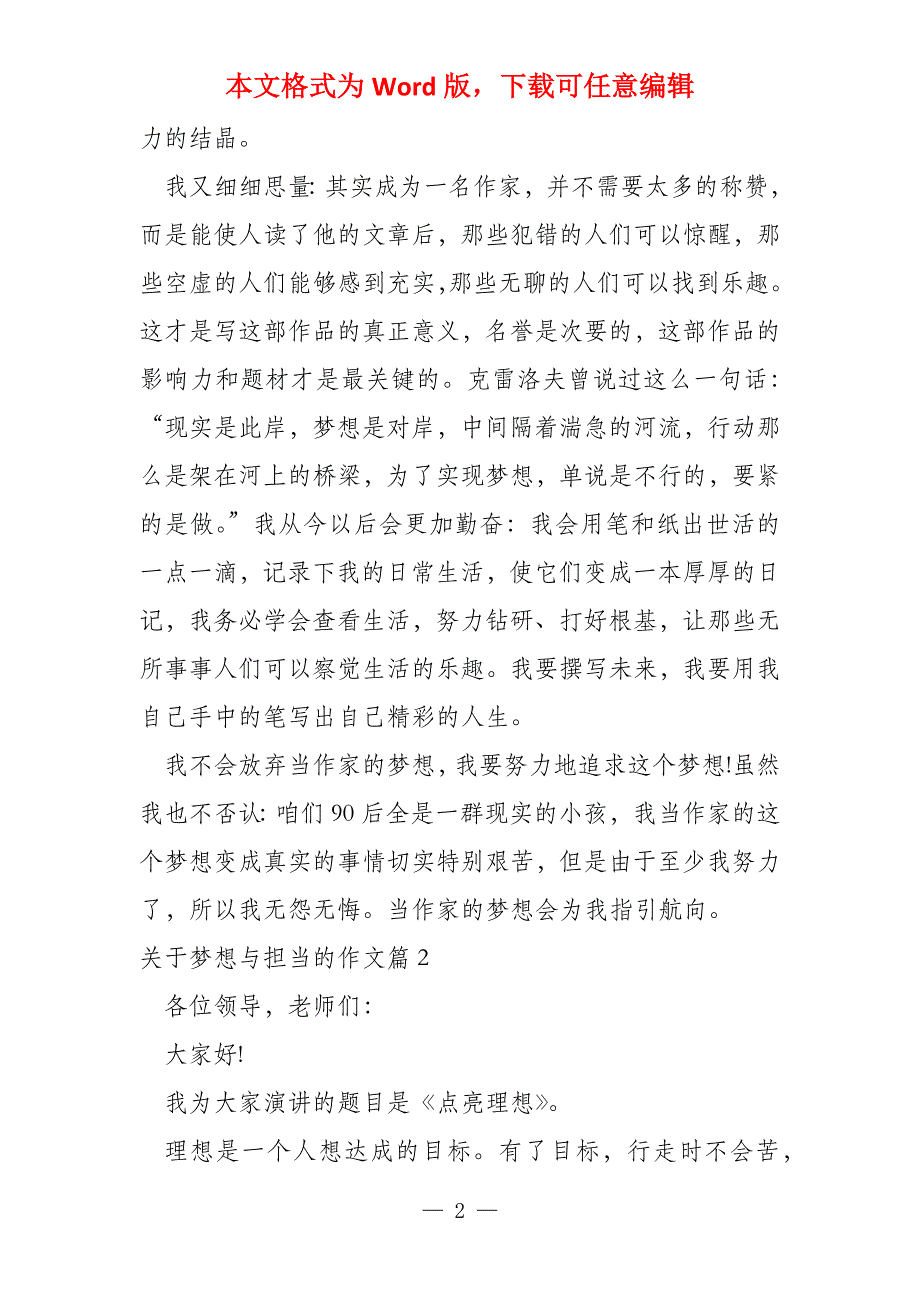 本文格式为 Word 版，下载可任意编辑
力的结晶。
我又细细思量：其实成为一名作家，并不需要太多的称赞，
而是能使人读了他的文章后，那些犯错的人们可以惊醒，那
些空虚的人们能够感到充实，那些无聊的人们可以找到乐趣。
这才是写这部作品的真正意义，名誉是次要的，这部作品的
影响力和题材才是最关键的。克雷洛夫曾说过这么一句话：
“现实是此岸，梦想是对岸，中间隔着湍急的河流，行动那
么是架在河上的桥梁，为了实现梦想，单说是不行的，要紧
的是做。”我从今以后会更加勤奋：我会用笔和纸出世活的
一点一滴，记录下我的日常生活，使它们变成一本厚厚的日
记，我务必学会查看生活，努力钻研、打好根基，让那些无
所事事人们可以察觉生活的乐趣。我要撰写未来，我要用我
自己手中的笔写出自己精彩的人生。
我不会放弃当作家的梦想，我要努力地追求这个梦想!虽然
我也不否认：咱们 90 后全是一群现实的小孩，我当作家的这
个梦想变成真实的事情切实特别艰苦，但是由于至少我努力
了，所以我无怨无悔。当作家的梦想会为我指引航向。
关于梦想与担当的作文篇 2
各位领导，老师们：
大家好!
我为大家演讲的题目是《点亮理想》。
理想是一个人想达成的目标。有了目标，行走时不会苦，
— 2 —